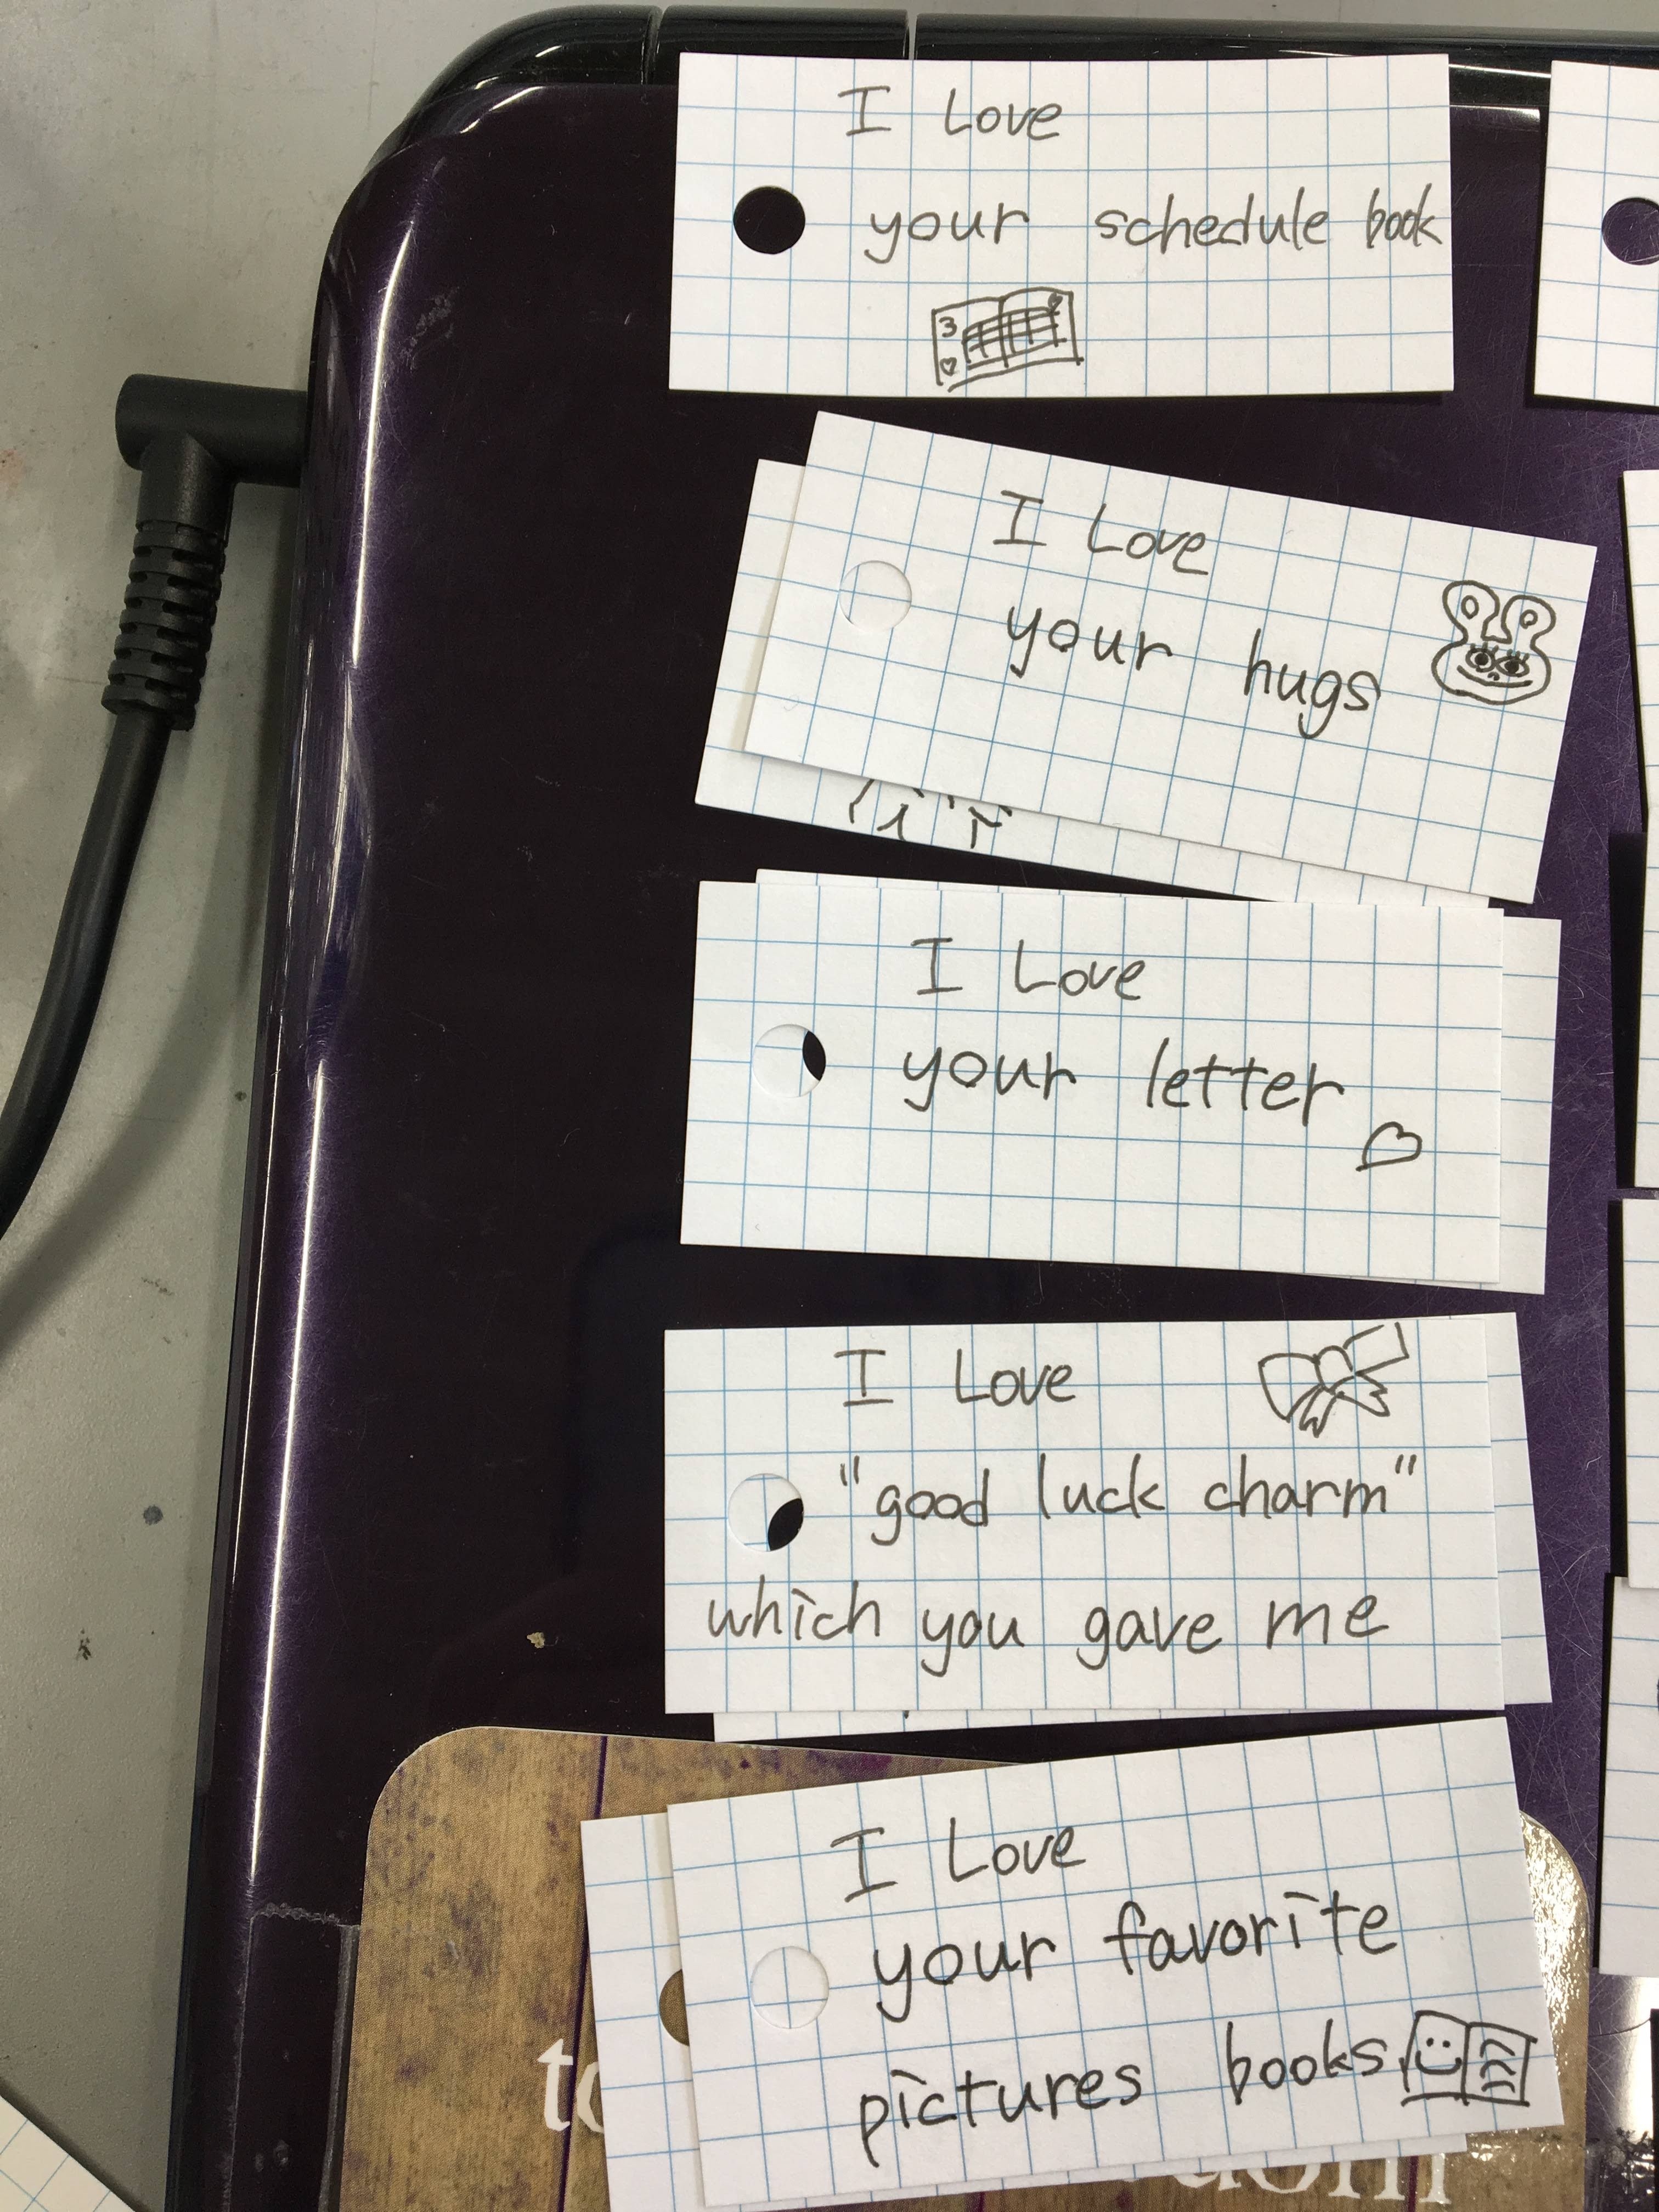 I Love
your schedule book
3
I Love
your hugs
I Love
your letter
I Love
"good luck charm"
which you gave me
I Love
your favorite
pictures books